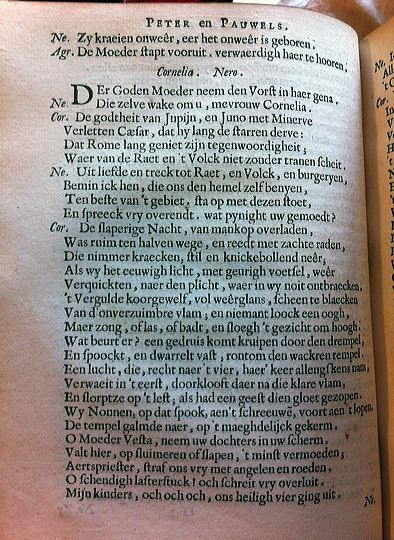 PETER en PAUWELS.
Ne. Zy kraeien onweêr, eer het onweêr is geboren.
Agr. De Moeder stapt vooruit. verwaerdigh haer te hooren.
Cornelia. Nero.
DEr Goden Moeder neem den Vorst in haer gena.
Ne. Die zelve wake om u, mevrouw Cornelia.
Cor. De godtheit van Jupijn, en Juno met Minerve
Verletten Cæsar, dat hy lang de starren derve:
Dat Rome lang geniet zijn tegenwoordigheit;
Waer van de Raet en 't Volck niet zonder tranen scheit.
Ne. Uit liefde en treck tot Raet, en Volck, en burgeryen,
Bemin ick hen, die ons den hemel zelf benyen,
Ten beste van 't gebiet, sta op met dezen stoet,
En spreeck vry overendt. wat pynight uw gemoedt?
Cor. De slaperige Nacht, van mankop overladen,
Was ruim ten halven wege, en reedt met zachte raden,
Die nimmer kraecken, stil en knickebollend neêr;
Als wy het eeuwigh licht, met geurigh voetsel, weêr
Verquickten, naer den plicht, waer in wy noit ontbraecken.
't Vergulde koorgewelf, vol weêrglans, scheen te blaecken
Van d'onverzuimbre vlam; en niemant loock een oogh,
Maer zong, of las, of badt, en sloegh 't gezicht om hoogh.
Wat beurt er? een gedruis komt kruipen door den drempel,
En spoockt, en dwarrelt vast, rontom den wackren tempel.
Een lucht, die, recht naer 't vier, haer' keer allengskens nam,
Verwaeit in 't eerst, doorklooft daer na die klare vlam,
En slorptze op 't lest; als had een geest dien gloet gezopen.
Wy Nonnen, op dat spook, aen 't schreeuwê, voort aen 't lopen.
De tempel galmde naer, op 't maeghdelijck gekerm.
O Moeder Vesta, neem uw dochters in uw scherm.
Valt hier, op sluimeren of slapen, 't minst vermoeden;
Aertspriester, straf ons vry met angelen en roeden.
O schendigh lasterstuck! och schreit vry overluit.
Mijn kinders, och och och, ons heiligh vier ging uit.
Ne.